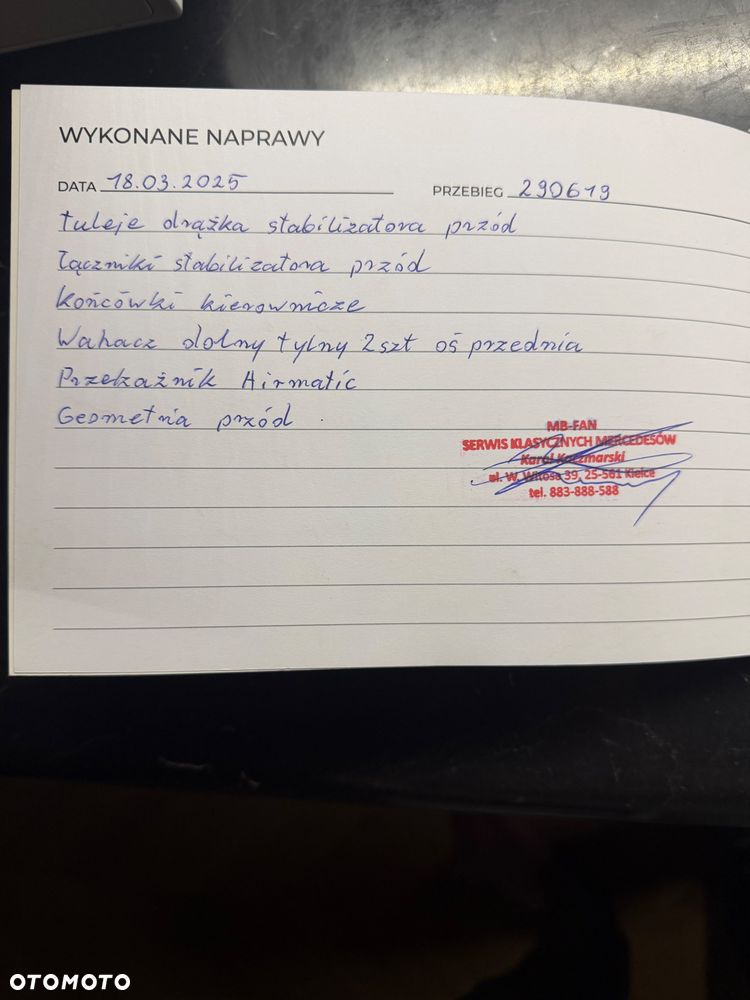 WYKONANE NAPRAWY
DATA 18.03.2025 PRZEBIEG 290619
tuleje drążka stabilizatora przód
Łączniki stabilizatora przód
Końcówki kierownicze
Wahacz dolny tylny 2szt oś przednia
Przekaźnik Airmatic
Geometria przód
MB-FAN
SERWIS KLASYCZNYCH MERCEDESÓW
Karol Kaczmarski
ul. W. Witosa 39, 25-561 Kielce
tel. 883-888-588
OTOMOTO